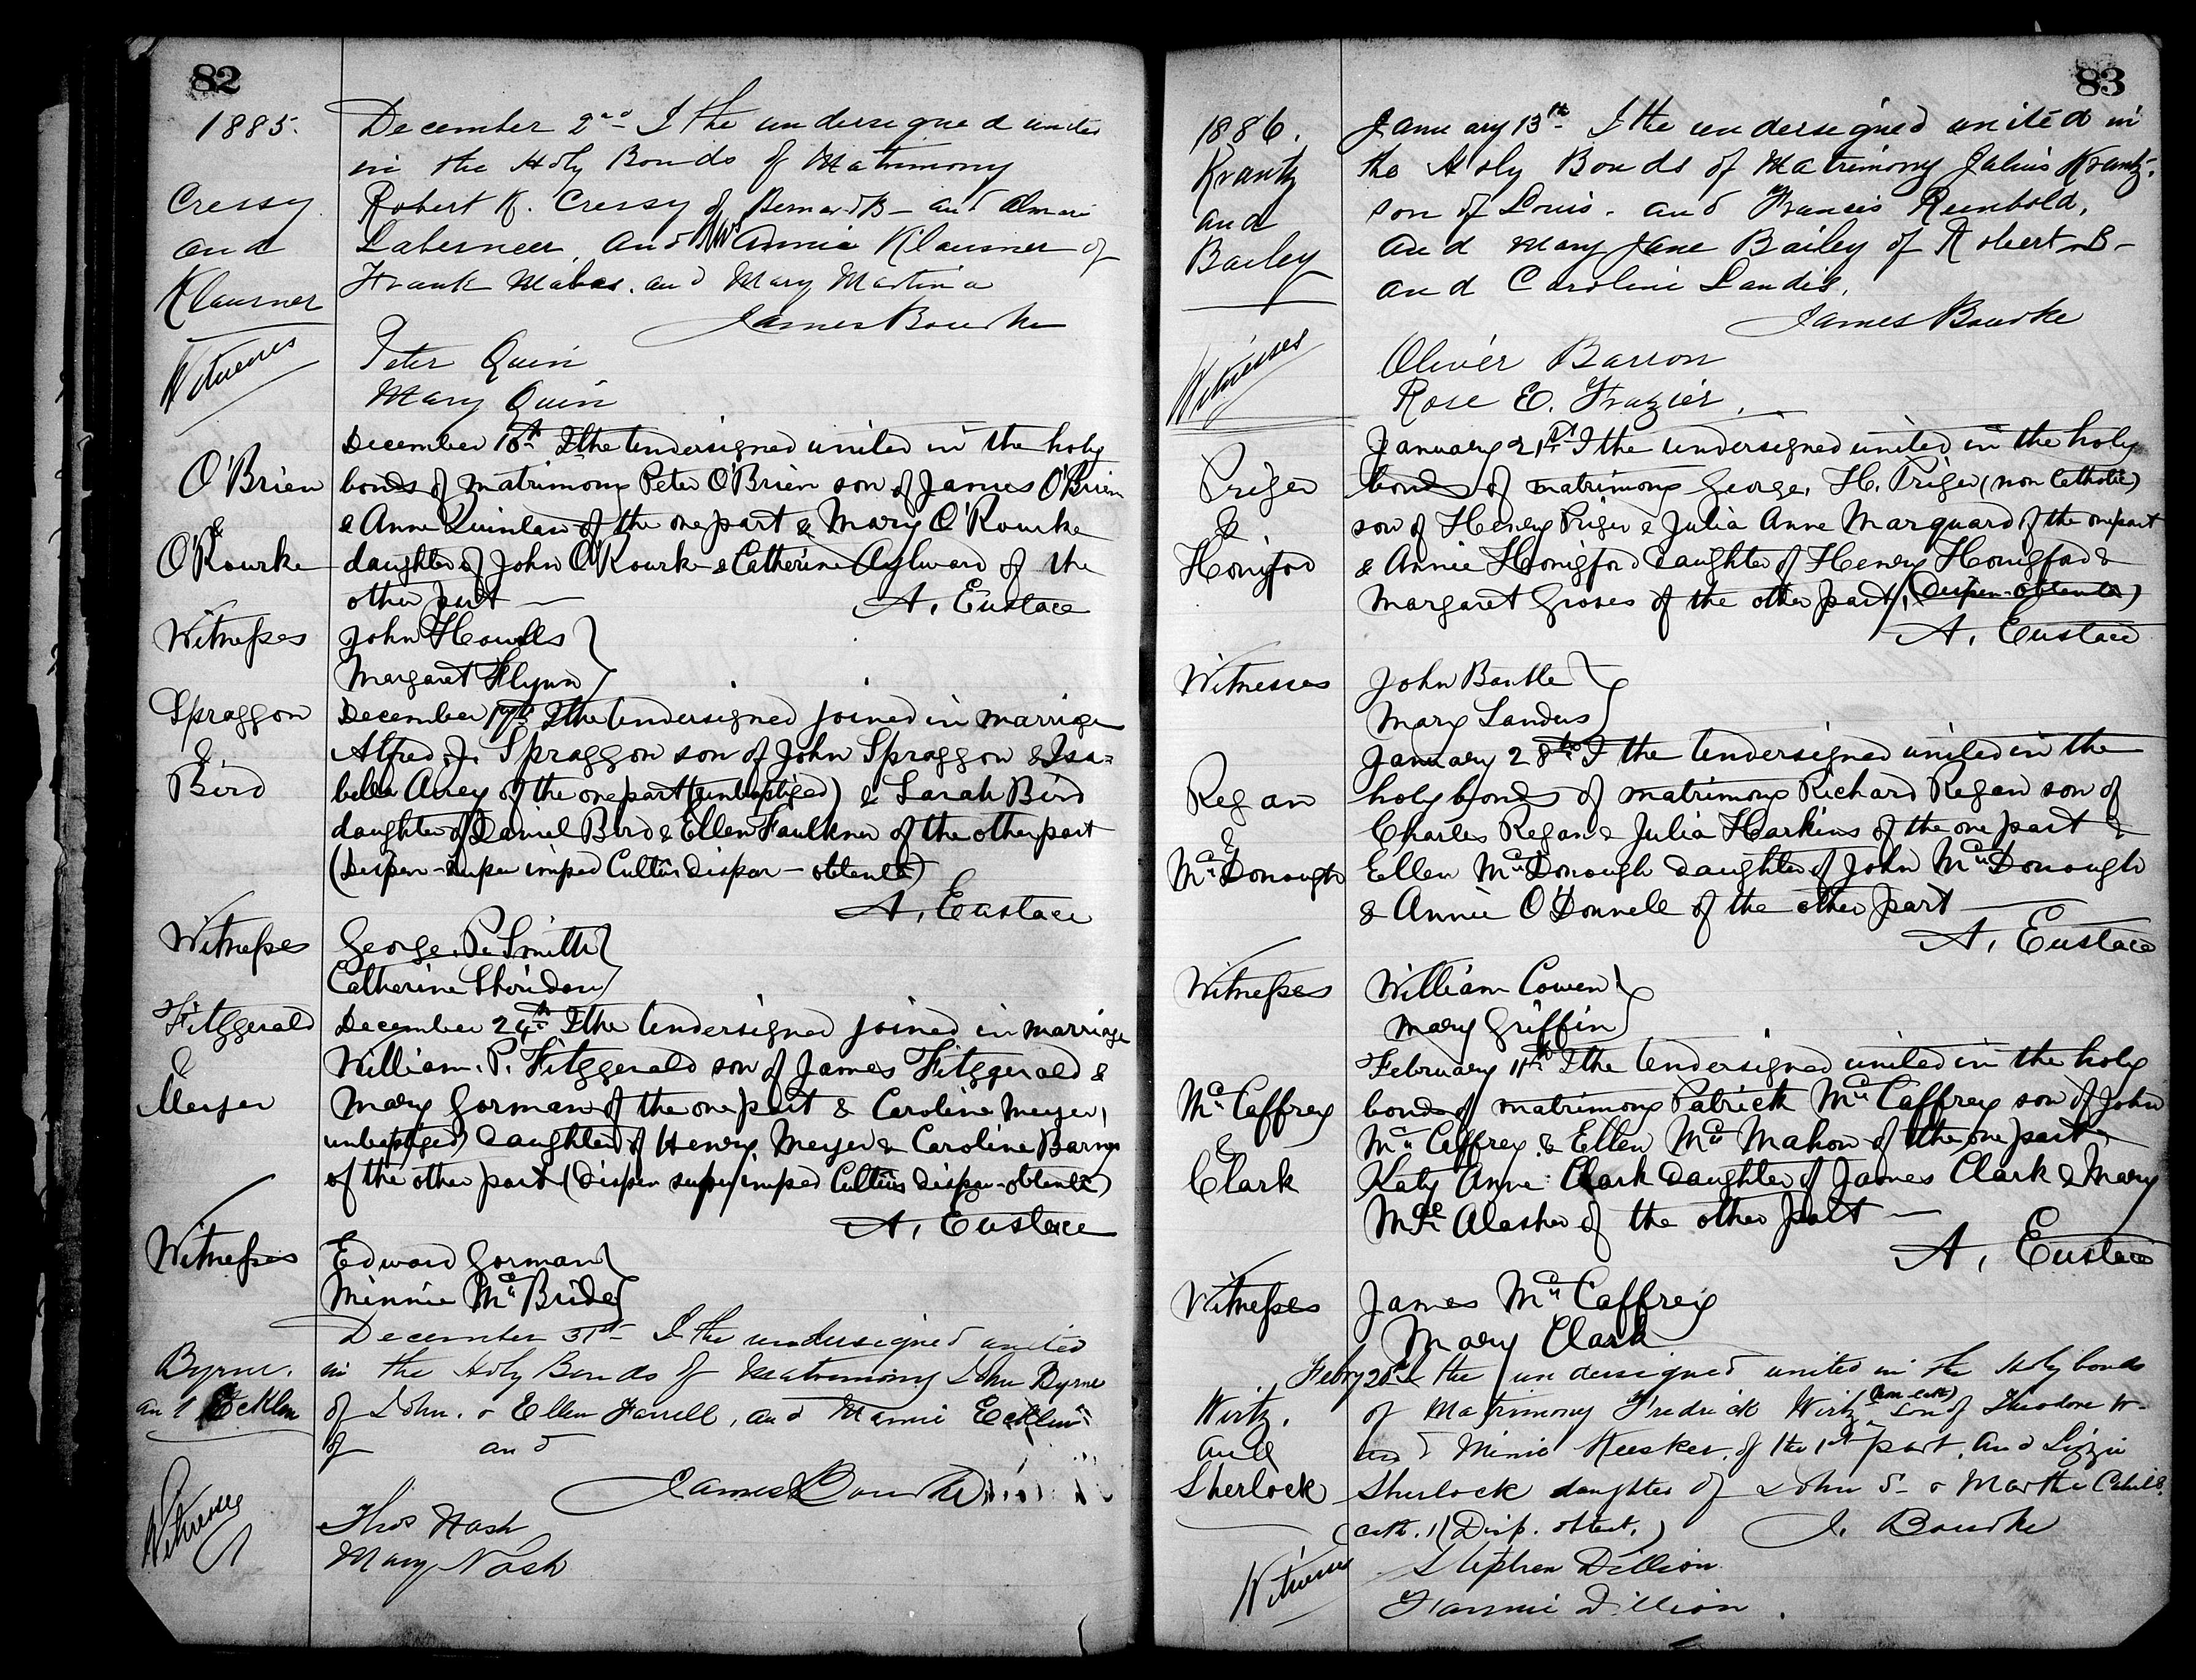 82
1885.
December 2nd I the undersigned united
in the Holy Bonds of Matrimony
Cressy
and
Klausner
Robert K. Cressy of Bernard B- and
and Mrs Annie Klausner of
Frank and Mary Martina
James Bourke
Witnesses
Peter Quin
Mary Quin
O'Brien
&
O'Rourke
December 10th I the undersigned united in the holy
bonds of matrimony Peter O'Brien son of James O'Brien
& Anne Quinlan of the one part & Mary O'Rourke
daughter of John O'Rourke & Catherine Aylward of the
other part
A. Eustace
Witnesses
John Howells
Margaret Flynn
Spraggon
&
Bird
December 17th I the undersigned joined in marriage
Alfred J. Spraggon son of John Spraggon & Isa=
bella Airey of the one part (unbaptized) & Sarah Bird
daughter of Daniel Bird & Ellen Faulkner of the other part
(Dispen - super imped Cultus dispar - obtenta)
A. Eustace
Witnesses
George P. Smith
Catherine Sheridan
Fitzgerald
&
Meyer
December 24th I the undersigned joined in marriage
William. P. Fitzgerald son of James Fitzgerald &
Mary Gorman of the one part & Caroline Meyer,
unbaptized) daughter of Henry Meyer & Caroline
of the other part (Dispen super imped Cultus dispar - obtenta)
A. Eustace
Witnesses
Edward Gorman
Minnie McBride
Byrne.
and Ecklen
December 31st I the undersigned united
in the Holy Bonds of Matrimony John Byrne
of John. & Ellen Farrell, and Mamie
of and
James Bourke
Witnesses
Thos Nash
Mary Nash
83
1886.
Krantz
and
Bailey
January 13th I the undersigned united in
the Holy Bonds of Matrimony Julius Krantz.
son of Louis. and Francis Reinbold,
and Mary Jane Bailey of Robert B-
and Caroline Landis.
James Bourke
Witnesses
Oliver Barron
Rose E. Frazier.
Priger
&
Honigford
January 21st I the undersigned united in the holy
bonds of matrimony George. H. Priger (non Catholic)
son of Henry Priger & Julia Anne Marquard of the one part
& Annie Honigford daughter of Henry Honigford &
Margaret Groves of the other part, (Dispen-obtenta)
A. Eustace
Witnesses
John Bantle
Mary Landers
Regan
&
McDonough
January 28th I the undersigned united in the
holy bonds of matrimony Richard Regan son of
Charles Regan & Julia Harkins of the one part &
Ellen McDonough daughter of John McDonough
& Annie O'Donnell of the other part
A. Eustace
Witnesses
William Cowen
Mary Griffin
McCaffrey
&
Clark
February 11th I the undersigned united in the holy
bonds of matrimony Patrick McCaffrey son of John
McCaffrey & Ellen McMahon of the one part
Katy Anne Clark daughter of James Clark & Mary
of the other part
A. Eustace
Witnesses
James McCaffrey
Mary Clark
Wirtz.
and
Sherlock
Febry I the undersigned united in the Holy bonds
of Matrimony Fredrick Wirtz (non cath) son of Theodore W-
and Minie of the 1st part, and Lizzie
Sherlock daughter of John S- & Martha Cahill.
(cath.) (Disp. obtent.) J. Bourke
Witnesses
Stephen Dillion
Fannie Dillion.